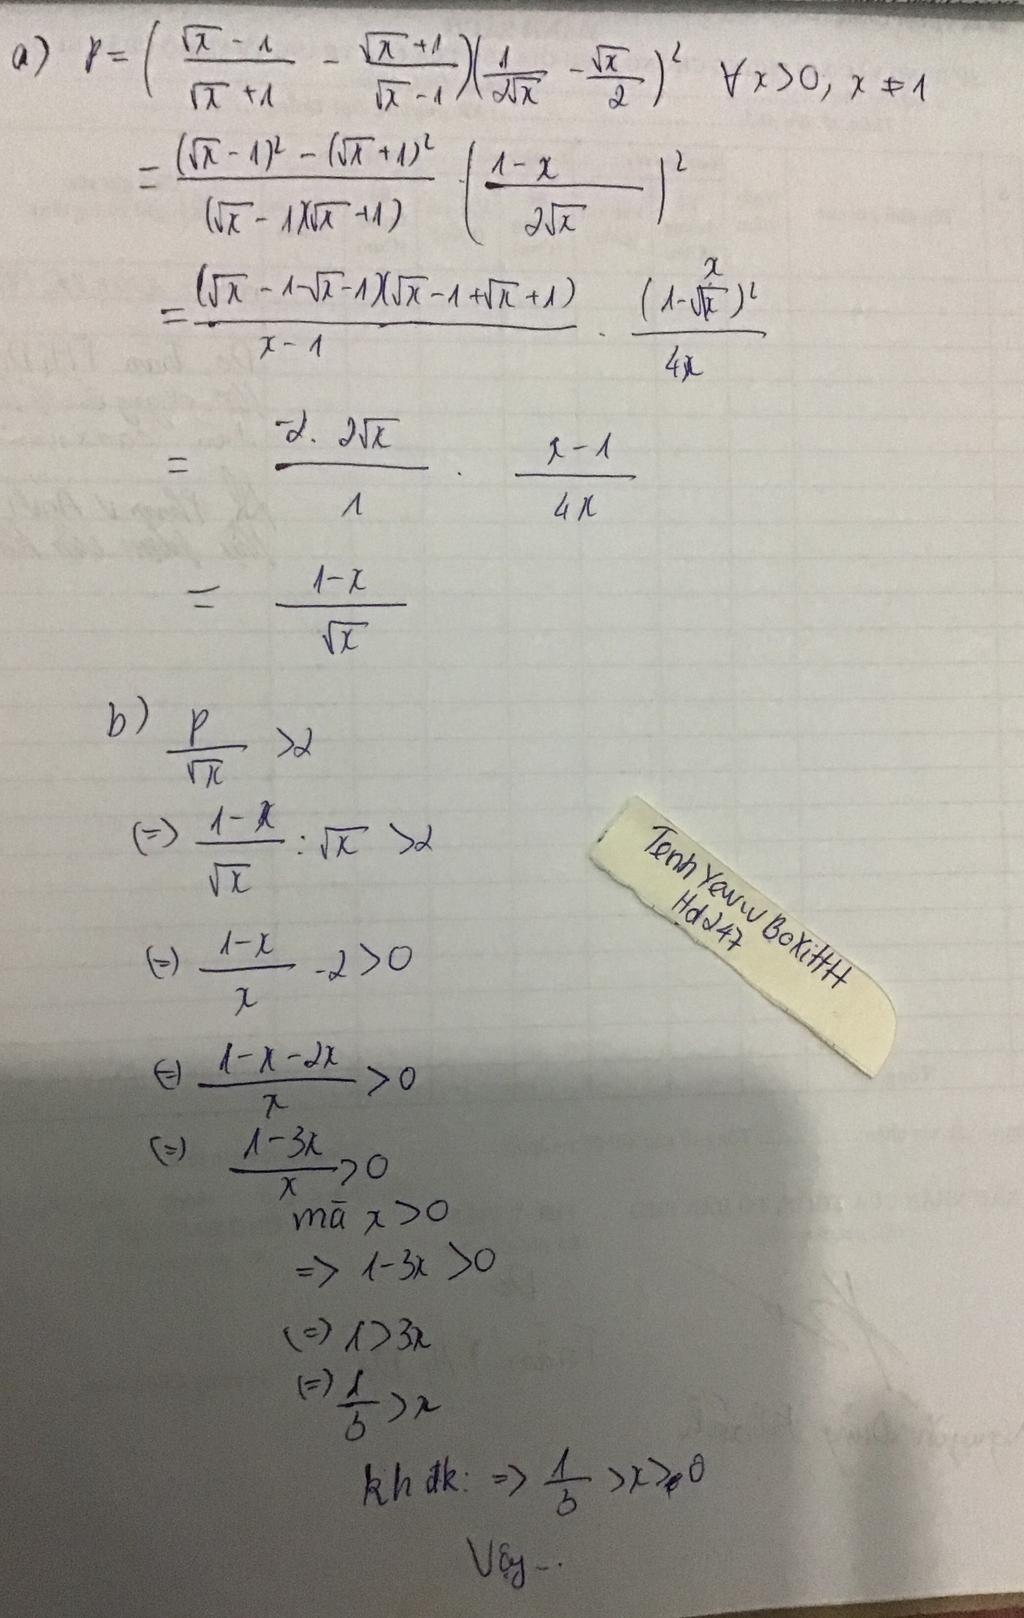 a) P = ( (√x - 1)/(√x + 1) - (√x + 1)/(√x - 1) )( 1/(2√x) - √x/2 )² ∀x>0, x ≠ 1
= ((√x - 1)² - (√x + 1)²)/((√x - 1)(√x + 1)) · ( (1 - x)/(2√x) )²
= ((√x - 1 - √x - 1)(√x - 1 + √x + 1))/(x - 1) · (1 - x)²/(4x)
= (-2. 2√x)/1 · (x - 1)/(4x)
= (1 - x)/√x
b) P/√x >2
(=) (1 - x)/√x : √x >2
(=) (1 - x)/x - 2 > 0
(=) (1 - x - 2x)/x > 0
(=) (1 - 3x)/x > 0
mà x > 0
=> 1 - 3x > 0
(=) 1 > 3x
(=) 1/3 > x
kh đk: => 1/3 > x > 0
Vậy...
Tenh Yeuu BoXiHH
Hd247